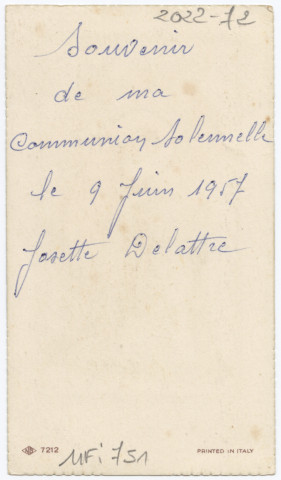 2022-72
Souvenir
de ma
Communion Solennelle
le 9 Juin 1957
Josette Delattre
7212
MFi 751
PRINTED IN ITALY